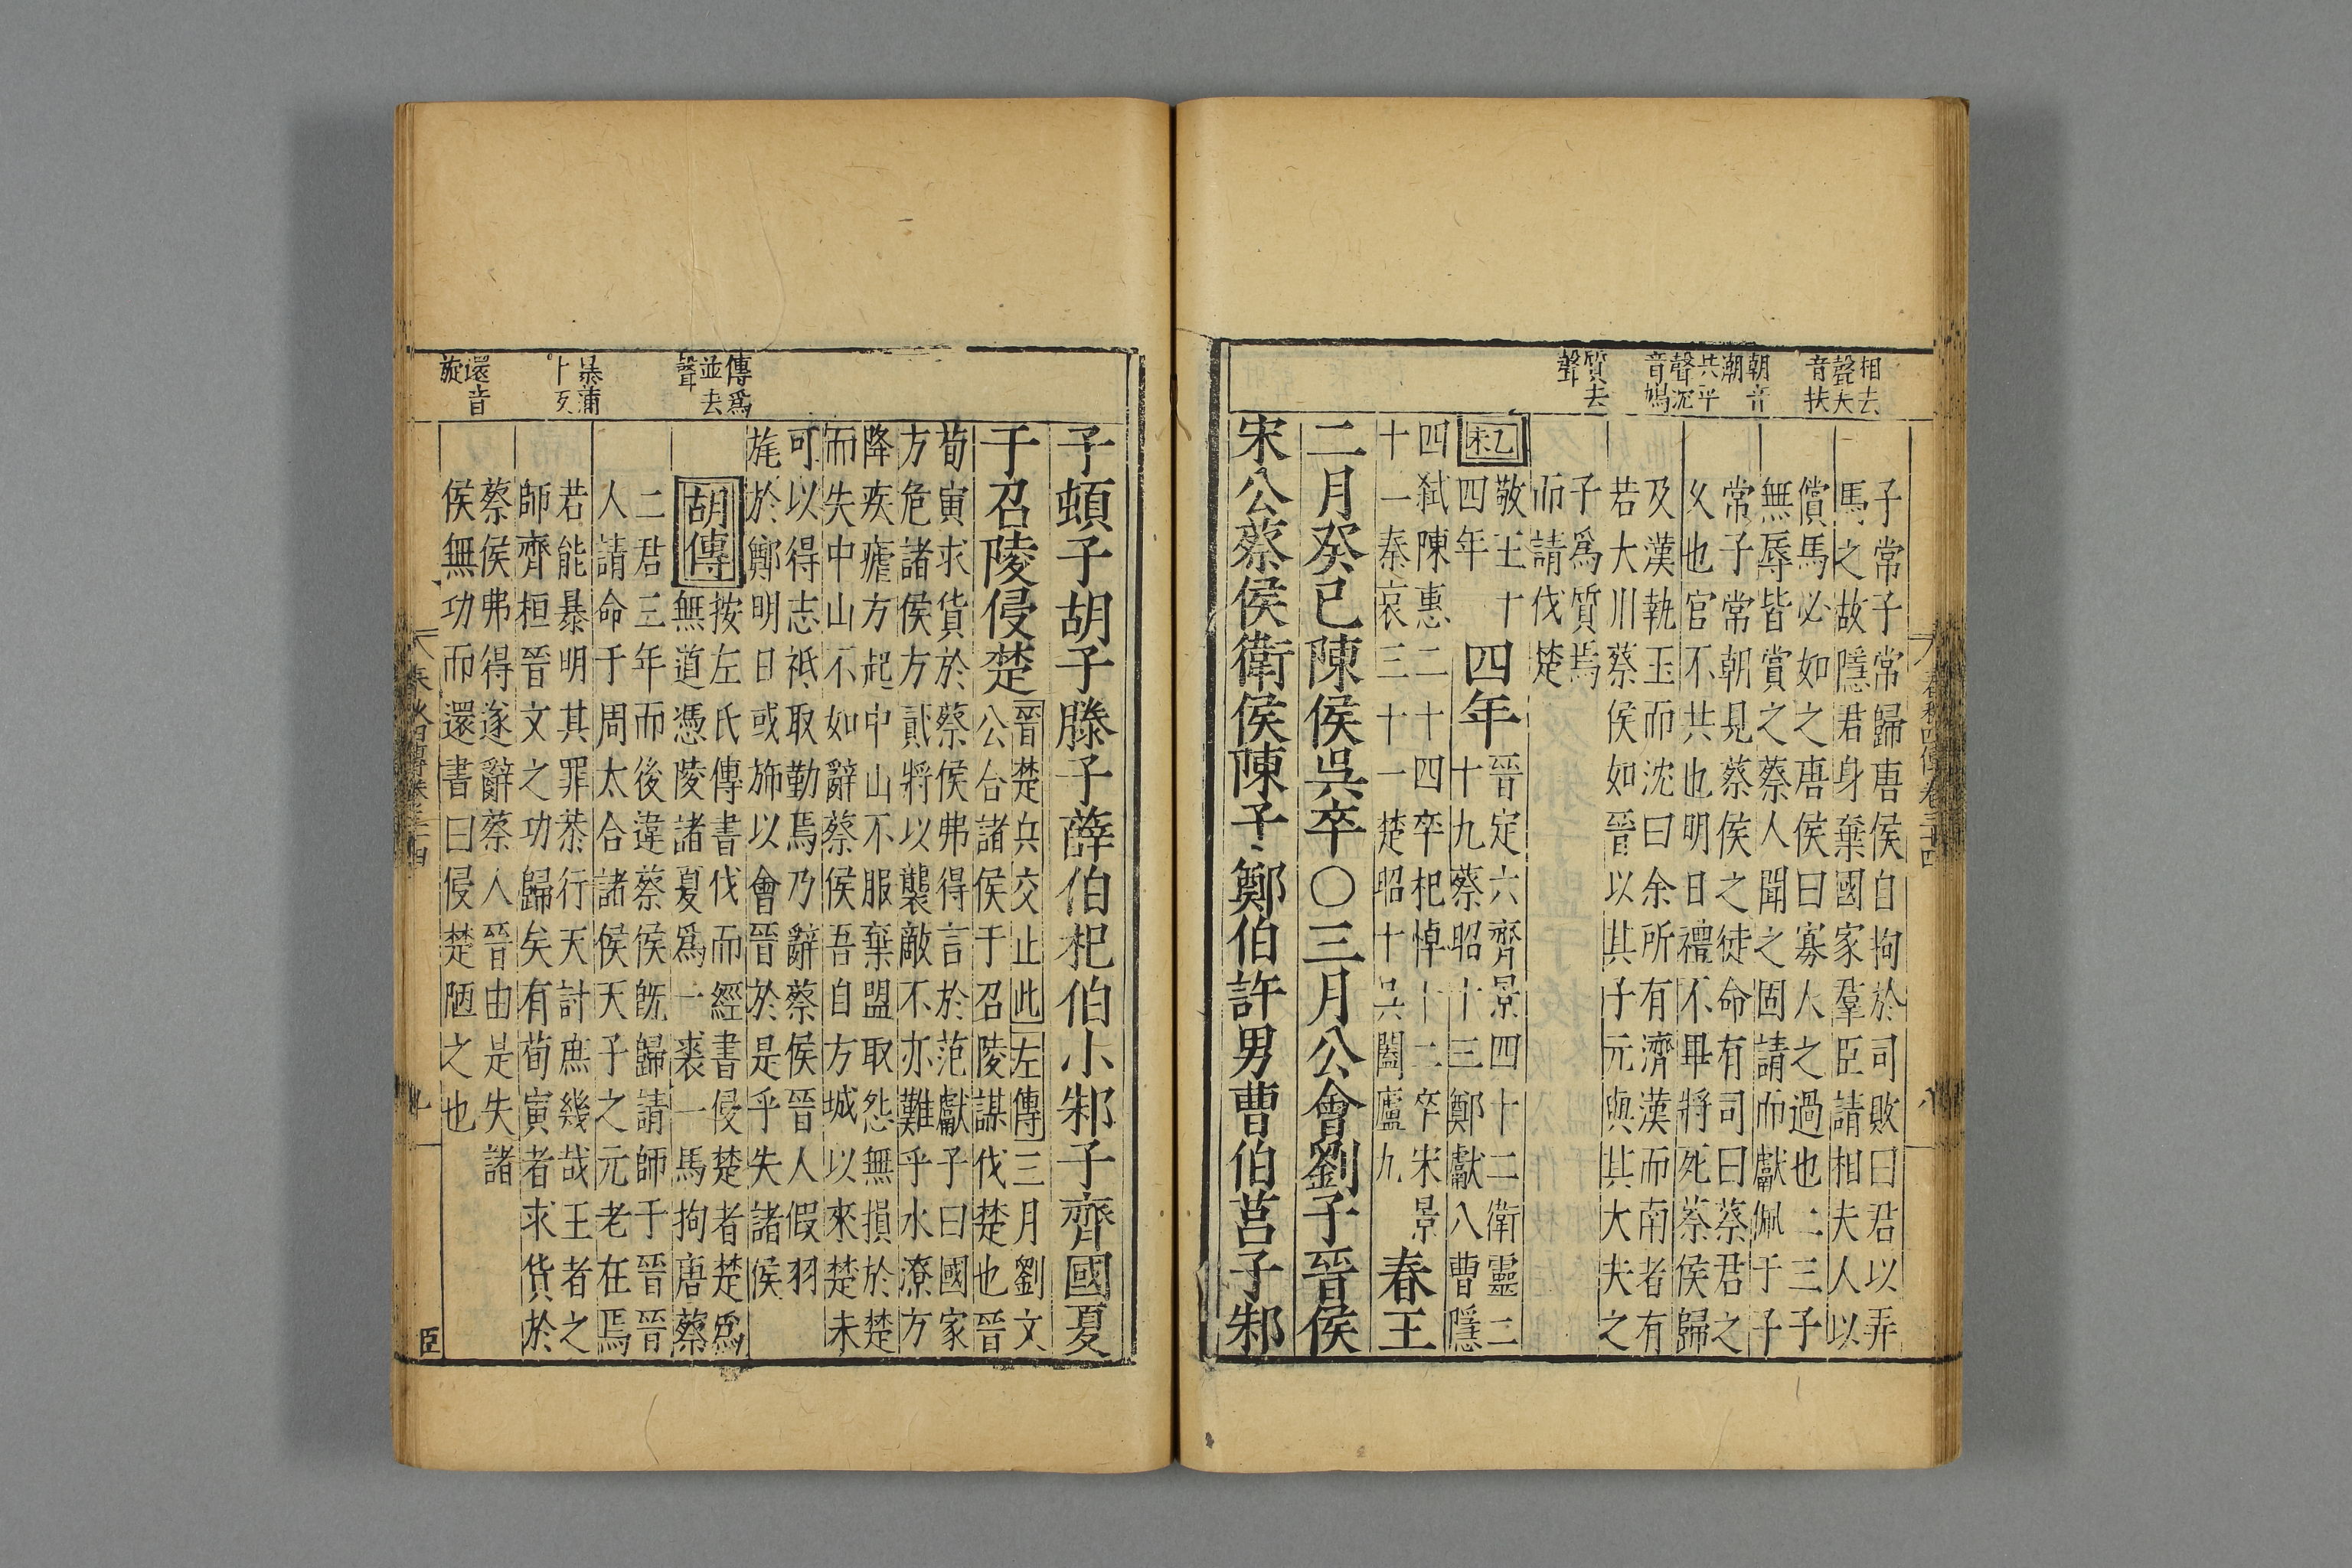 相去
聲夫
音扶
朝音
潮
共平
聲沉
音鴆
質去
聲
子常子常歸唐侯自拘於司敗曰君以弄
馬之故隱君身棄國家羣臣請相夫人以
償馬必如之唐侯曰寡人之過也二三子
無辱皆賞之蔡人聞之固請而獻佩于子
常子常朝見蔡侯之徒命有司曰蔡君之
乆也官不共也明日禮不畢將死蔡侯歸
及漢執玉而沈曰余所有濟漢而南者有
若大川蔡侯如晉以其子元與其大夫之
子爲質焉
而請伐楚
乙未
敬王十
四年
四年
晉定六齊景四十二衛靈二
十九蔡昭十三鄭獻八曹隱
四弑陳惠二十四卒杞悼十二卒宋景
十一秦哀三十一楚昭十吳闔廬九
春王
二月癸巳陳侯吳卒○三月公會劉子晉侯
宋公蔡侯衛侯陳子鄭伯許男曹伯莒子邾
春秋四傳卷三十四
八
傳爲
並去
聲
暴蒲
卜反
還音
旋
子頓子胡子滕子薛伯杞伯小邾子齊國夏
于召陵侵楚
晉楚兵交止此左傳三月劉文
公合諸侯于召陵謀伐楚也晉
荀寅求貨於蔡侯弗得言於范獻子曰國家
方危諸侯方貳將以襲敵不亦難乎水潦方
降疾瘧方起中山不服棄盟取怨無損於楚
而失中山不如辭蔡侯吾自方城以來楚未
可以得志祗取勤焉乃辭蔡侯晉人假羽
旄於鄭明日或旆以會晉於是乎失諸侯
胡傳
按左氏傳書伐而經書侵楚者楚爲
無道憑陵諸夏爲一裘一馬拘唐蔡
二君三年而後違蔡侯旣歸請師于晉晉
人請命于周太合諸侯天子之元老在焉
若能暴明其罪恭行天討庶幾哉王者之
師齊桓晉文之功歸矣有荀寅者求貨於
蔡侯弗得遂辭蔡人晉由是失諸
侯無功而還書曰侵楚陋之也
臣